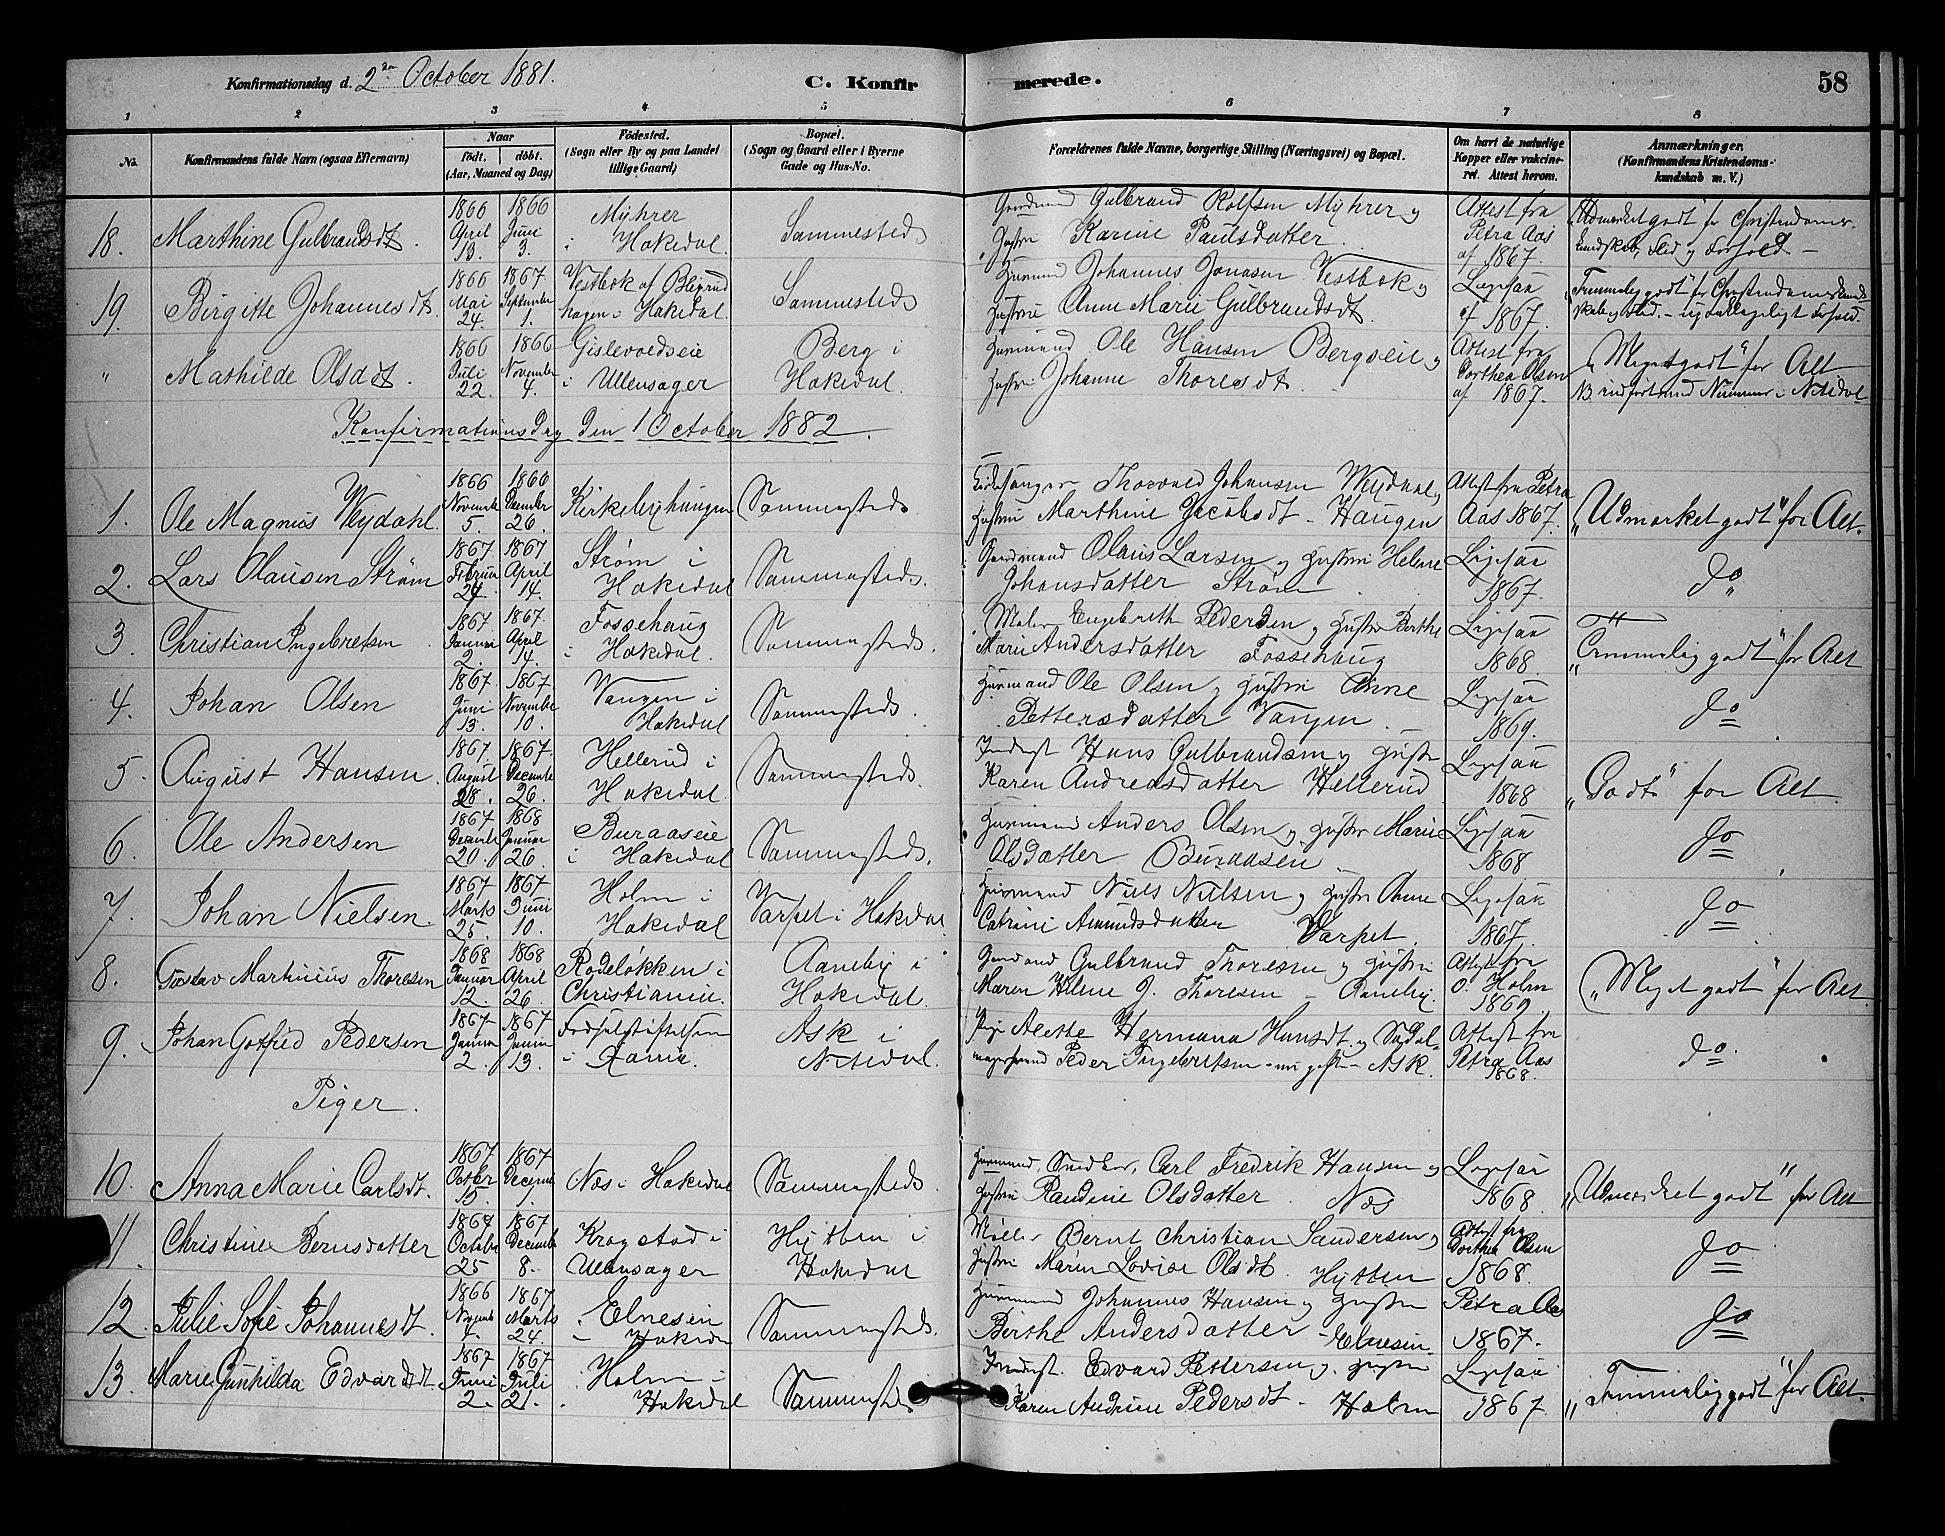 Konfirmationsdag d. 2den October 1881.
C. Konfirmerede.
58
1 2 3 4 5 6 7 8
No. Konfirmandens fulde Navn (ogsaa Efternavn) Naar født. døbt. (Aar, Maaned og Dag) Fødested. (Sogn eller By og paa Landet tillige Gaard) Bopæl. (Sogn og Gaard eller i Byerne Gade og Hus-No. Forældrenes fulde Navne, borgerlige Stilling (Næringsvei) og Bopæl. Om havt de naturlige Kopper eller vakcineret. Attest herom. Anmærkninger. (Konfirmandens Kristendomskundskab m. V.)
18. Marthine Gulbrandsdt. 1866 April 13. 1866 Juni 3. Myhrer i Hakedal. Sammesteds Gaardmand Gulbrand Rolfsen Myhrer og Hustru Karine Paulsdatter. Attest fra Petra Aas af 1867. "Udmærket godt" for Christendomskundskab, Flid og Forhold
19. Birgitte Johannesdt. 1866 Mai 24. 1867 September 1. Vestbek af hagen i Hakedal Sammesteds Huusmand Johannes Jonasen Vestbek og Hustru Anne Marie Gulbrandsdt. Ligesaa af 1867. "Temmelig godt" for Christendomskundskab og Flid. Forhold.
" Mathilde Olsdt. 1866 Juli 22. 1866 November 4. i Ullensager Berg i Hakedal. Huusmand Ole Hansen Bergseie og Hustru Johanne Thoresdt. Attest fra Dorthea Olsen af 1867. "Meget godt" for Alt NB. indført med Nummer i Nitedal
Konfirmationsdag den 1 October 1882.
1. Ole Magnus Weydahl. 1866 November 5. 1866 December 26. Kirkebyhaugen Sammesteds Kirkesanger Thorvald Johansen Weydahl og Hustru Marthine Jacobsdt. Haugen Attest fra Petra Aas 1867. "Udmærket godt" for Alt.
2. Lars Olausen Strøm 1867 Februar 24. 1867 April 14. Strøm i Hakedal Sammesteds. Gaardmand Olaus Larsen og Hustru Helene Johansdatter Strøm Ligesaa 1867. do
3. Christian Ingebretsen 1867 Januar 2. 1867. April 14. Fossehaug i Hakedal. Sammesteds. Maler Engebreth Pedersen og Hustru Berthe Marie Andersdatter Fossehaug Ligesaa 1868. "Temmelig godt" for Alt
4. Johan Olsen 1867 Juni 13. 1867 November 10. Vangen i Hakedal Sammesteds. Huusmand Ole Olsen og Hustru Anne Pettersdatter Vangen. Ligesaa 1869. do
5. August Hansen 1867 August 28. 1867. December 26. Hellerud i Hakedal. Sammesteds Inderst Hans Gulbrandsen og Hustru Karen Andreasdatter Hellerud Ligesaa 1868 "Godt" for Alt.
6. Ole Andersen 1867 December 20. 1868 Januar 26. Buraaseie i Hakedal Sammesteds. Huusmand Anders Olsen og Hustru Marie Olsdatter Buraaseie Ligesaa 1868 do
7. Johan Nielsen. 1867 Marts 25. 1867 Juni 10. Holm i Hakedal Varpet i Hakedal. Huusmand Niels Nielsen og Hustru Anne Catrine Amundsdatter Varpet. Ligesaa 1867. do
8. Gustav Martinius Thoresen 1868 Januar 12. 1868 April 26. Rodeløkken i Christiania. Aaneby i Hakedal. Gaardmand Gulbrand Thoresen og Hustru Maren Helene G. Thoresen - Aaneby. Attest fra O. Holm 1869 "Meget godt" for Alt
9. Johan Gotfred Pedersen 1867 Januar 2. 1867 Januar 13. Fødselsstiftelsen i Xania. Ask i Nitedal. Pige Alethe Hermana Hansdt. og Sadelmagersvend Peder Ingebretsen - nu gift - Ask. Attest fra Petra Aas 1868. do.
Piger.
10. Anna Marie Carlsdt. 1867 October 15 1867 December 1. Næs i Hakedal Sammesteds. Huusmand, Snedker, Carl Fredrik Hansen og Hustru Randine Olsdatter. Næs Ligesaa 1868. "Udmærket godt" for Alt
11. Christine Berntsdatter 1867 October 25 1867 December 8. Krogstad i Ullensager Hytten i Hakedal Møller Bernt Christian Sandersen og Hustru Maren Lovise Olsdt. Hytten Attest fra Dorthea Olsen 1868. do
12. Julie Sofie Johannesdt. 1866 Novemb 4. 1867 Marts 24. Elnesein i Hakedal Sammesteds. Huusmand Johannes Hansen og Hustru Berthe Andersdatter - Elnesein. Petra Aas 1867. do
13. Marie Gunhilda Edvardsdt. 1867 Juni 2. 1867 Juli 21. Holm i Hakedal Sammesteds Inderst Edvard Pettersen og Hustru Karen Andrine Pedersdt. Holm Ligesaa 1867. "Temmelig godt" for Alt.